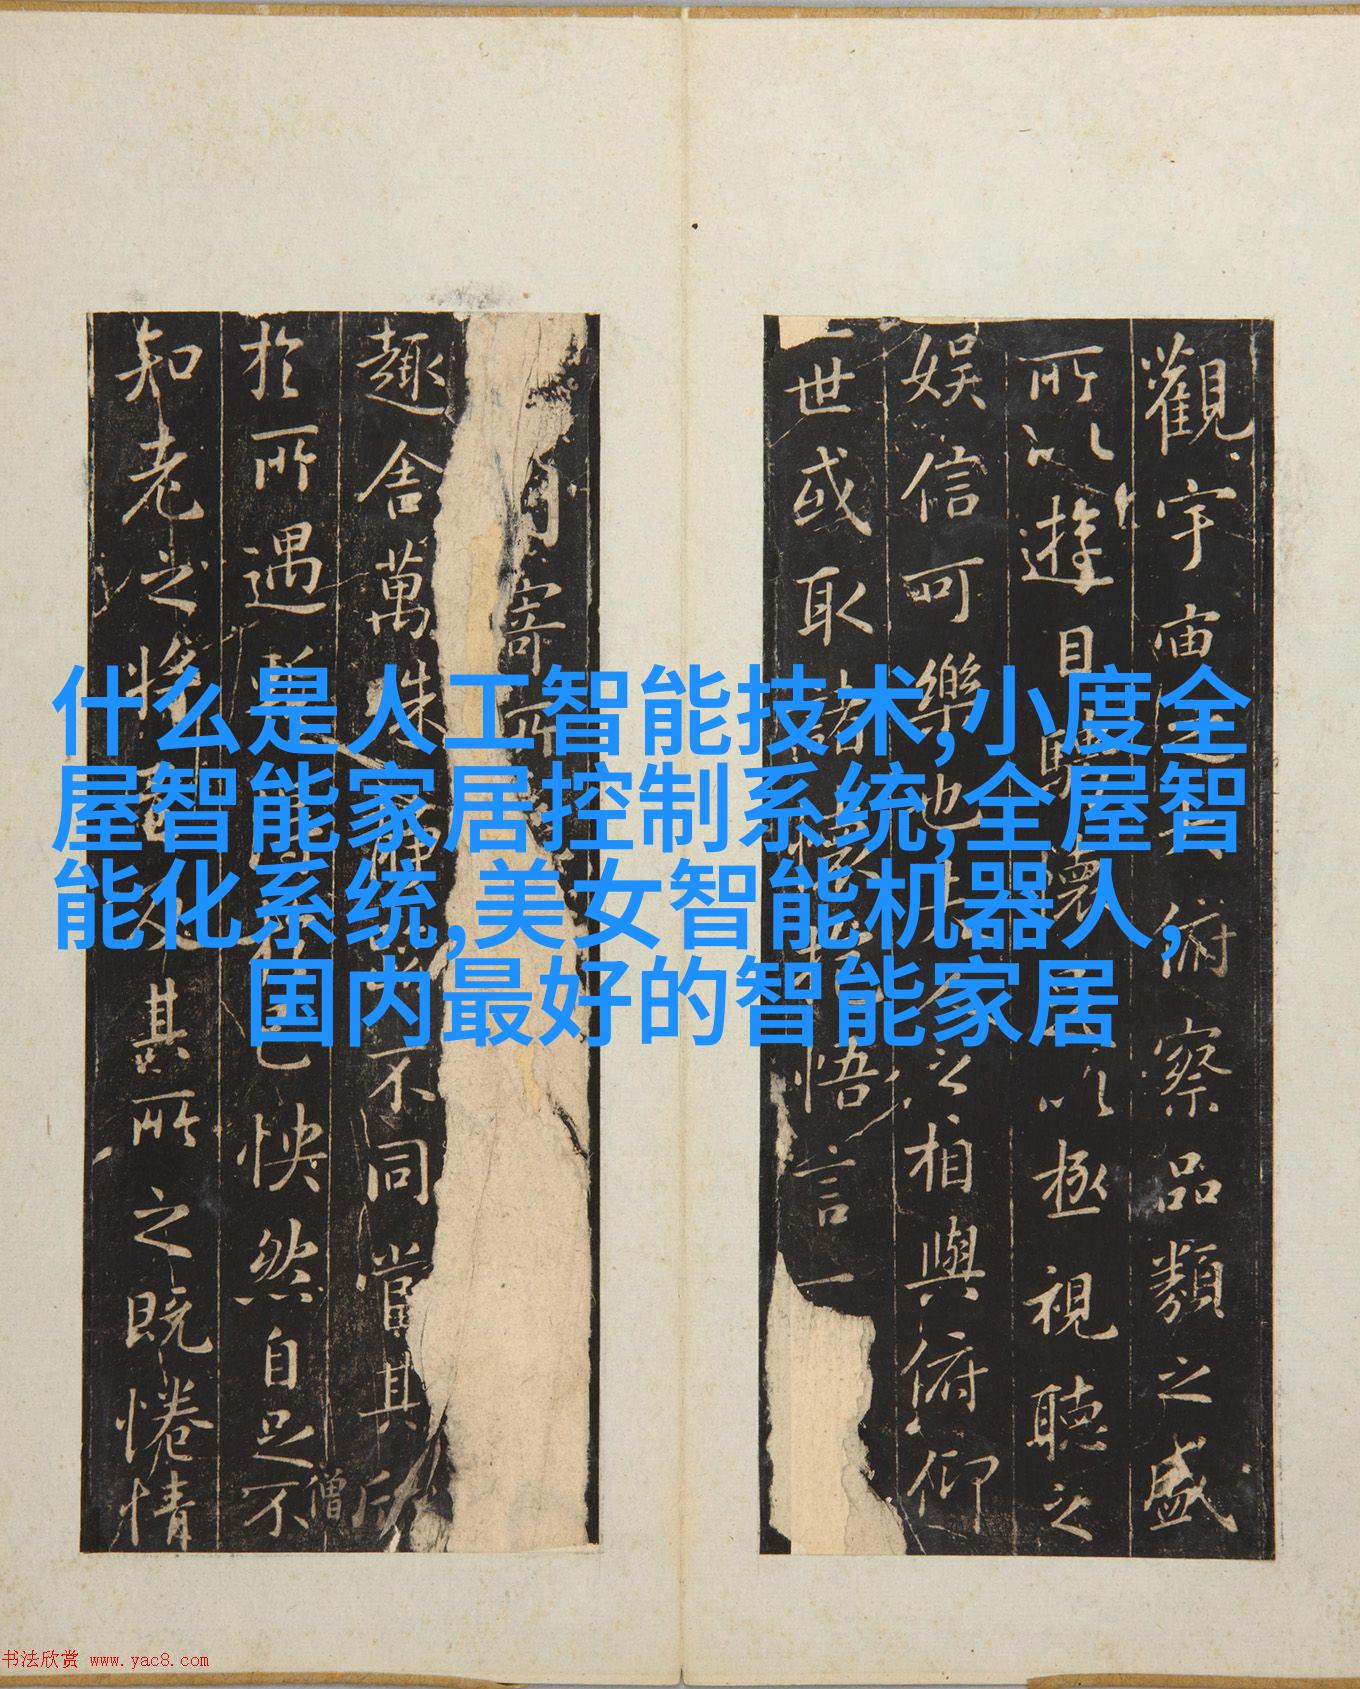 什么是人工智能技术,小度全
屋智能家居控制系统,全屋智
能化系统,美女智能机器人,
国内最好的智能家居
觀宇宙俯察品類之盛
所以遊目騁懷以極視聽之
娛信可樂也之相與俯仰
世或取諸悟言一
寄所
趣舍萬殊不同當其欣
於所遇己怏然自足不
僧
知老之將其所之既惓情
书法欣赏 www.yac8.com